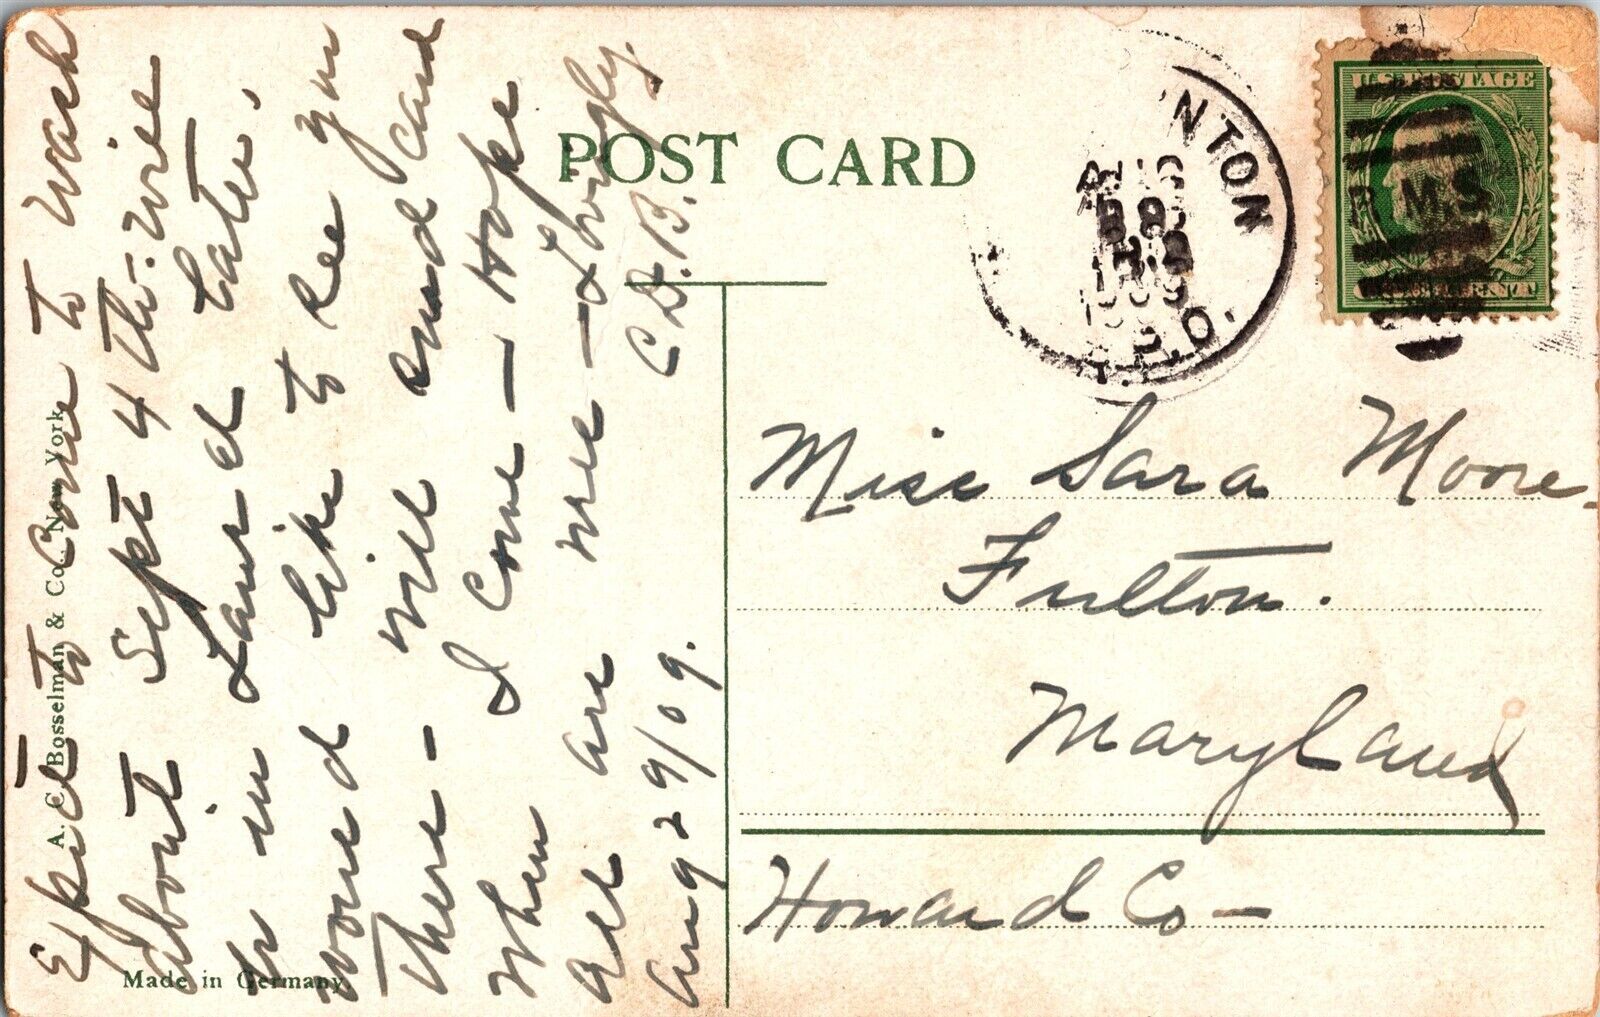 POST CARD
U.S. POSTAGE
NTON
AUG
1909
R.P.O.
R.M.S.
Expect to come to Wash
about Sept 4th - wire
be in Laurel later,
would like to see you
there - will send card
when I come - Hope
all are well - Lovingly
Aug 29/09. C.D.B.
A. C. Bosselman & Co., New York
Made in Germany.
Miss Sara Moore
Fulton.
Maryland
Howard Co -